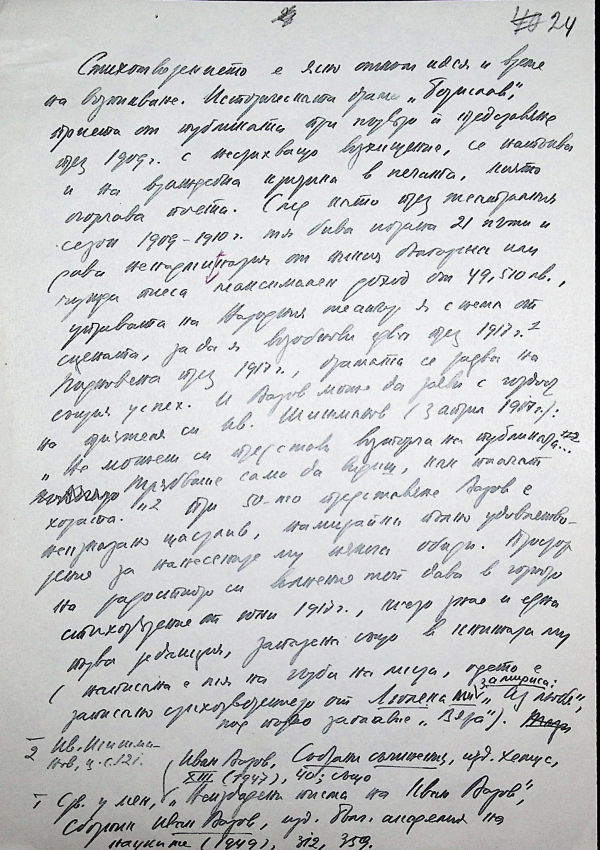 24
Стихотворението е ясно откъм идея и време
на възникване. Историческата драма „Борислав“,
приета от публиката при първото ѝ представяне
през 1909 г. с нестихващо възхищение, се натъква
и на враждебна критика в печата, която
огорчава поета. След като през театралния
сезон 1909–1910 г. тя бива играна 21 пъти и
дава от никоя българска или
чужда пиеса максимален доход от 49,510 лв.,
управата на Народния театър я снема от
сцената, за да я възобнови едва през 1917 г.
Подновена през 1917 г., драмата се радва на
същия успех. И Вазов може да заяви с гордост
на приятеля си Ив. Шишманов (3 април 1917 г.):
„Не можеш си представи възторга на публиката...
Трябваше само да видиш, как плачат
хората.“ 2 При 50-то представяне Вазов е
неизказано щастлив, намирайки пълно удовлетво-
рение за нанесените му някога обиди. Простор
на радостното си вълнение той дава в горното
стихотворение от юни 1917 г., чиято
първа редакция, запазена също в книжата му
(написана е тя на гърба на листа, дето е
записано стихотворението от „Люлека ми замириса“,
под първо заглавие „Вяра“).
2 Ив. Шишма-
нов, ц. с. 121.
Иван Вазов, Събрани съчинения, изд. Хемус,
XIII (1947), също
1 Срв. у мен, „Неиздадени писма на Иван Вазов“,
Сборник Иван Вазов, изд. Бълг. академия на
науките (1949), 312, 359.